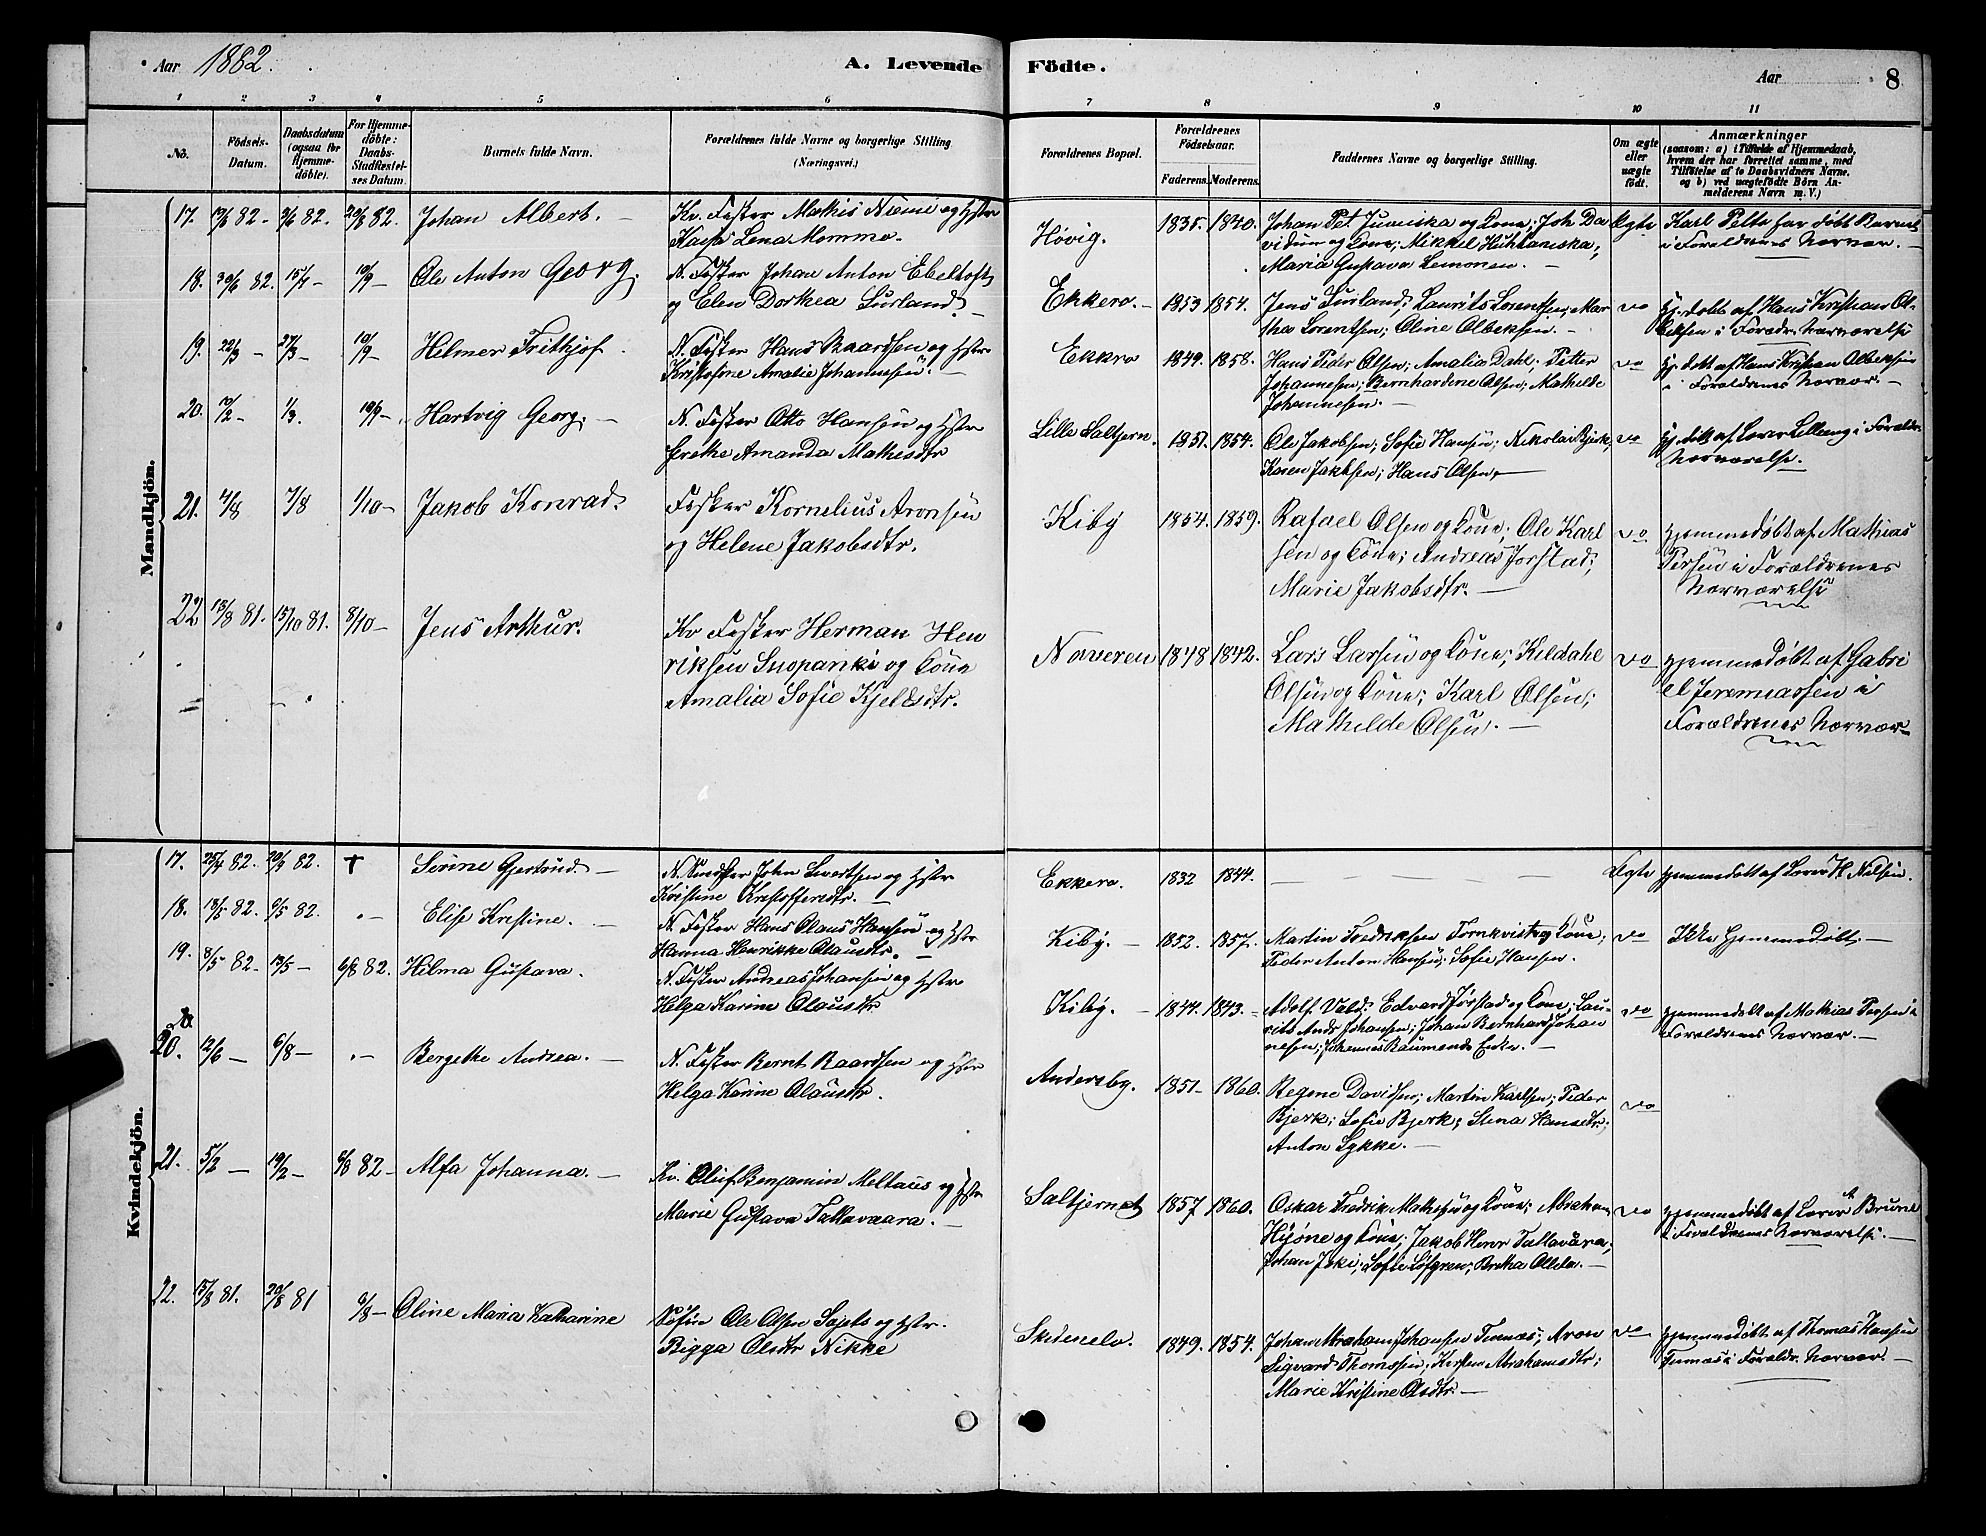 Aar 1882. A. Levende Födte. Aar 8
1 2 3 4 5 6 7 8 9 10 11
No.
Födsels-Datum.
Daabsdatum (ogsaa for Hjemme-döbte).
For Hjemme-döbte: Daabs-Stadfæstel-ses Datum.
Barnets fulde Navn.
Forældrenes fulde Navne og borgerlige Stilling (Næringsvei.)
Forældrenes Bopæl.
Forældrenes Födselsaar.
Faderens. Moderens.
Faddernes Navne og borgerlige Stilling.
Om ægte eller uægte födt.
Anmærkninger
(saasom: a) i Tilfælde af Hjemmedaab,
hvem der har forrettet samme, med
Tilföielse af to Daabsvidners Navne.
og b) ved uægtefödte Börn An-
melderens Navn m. V.)
Mandkjön.
17. 82. 82. 82. Johan Albert. — Kv. Fisker Mathis Niemi og Hstr
Kaisa Lena Mommo.
Hövig. 1835. 1840. Johan Pet. og Kone; Joh. Da
vidsen og Kone; Mikkel
Maria Gustava Lemonen. —
Ægte Karl Pelto har döbt Barnet
i Forældrenes Nærvær. —
18. 30/6 82. 15/7 — 10/9 — Ole Anton Georg. N. Fisker Johan Anton Ebeltoft
og Elen Dorthea Surland. —
Ekkerø. — 1853 1854. Jens Surland; Laurits Lorentsen; Mar
tha Lorentsen; Oline Olbeksen. —
do hj. döbt af Hans Kristian Ol-
beksen i Forædr. Nærværelse
19. 22/3 — 27/3 — 10/9 — Helmer Frithjof. N. Fisker Hans Baardsen og Hstr
Kristofine Amalie Johannesen. —
Ekkerø 1849. 1858. Hans Peder Olsen; Amalia Dahl; Petter
Johannesen; Bernhardine Olsen; Mathilde
Johannesen. —
do hj. döbt af Hans Kristian Olbeksen
i Forældrenes Nærvær. —
20. 1/3. 10/9 — Hartvig Georg. — N. Fisker Otto Hansen og Hstr
Grethe Amanda Mathisdtr
Lille Saltjern. 1851. 1854. Ole Jakobsen; Sofie Hansen; Nikolai Bjerk,
Karen Jakobsen; Hans Olsen, —
do hj. döbt af Lærer Lilleeng i Forældr.
Nærværelse.
21. 4/8 7/8 1/10 — Jakob Konrad. Fisker Kornelius Aronsen
og Helene Jakobsdtr.
Kiby 1854. 1859. Rafael Olsen og Kone; Ole Karl
sen og Kone; Andreas Jorstad;
Marie Jakobsdtr. —
do hjemmedöbt af Mathias
Persen i Forældrenes
Nærværelse
22 13/8 81. 15/10 81. 8/10 — Jens Arthur. Kv Fisker Herman Hen
riksen Snopanki og Kone
Amalia Sofie Kjeldsdtr.
Naveren 1848 1842. Lars Larsen og Kone; Kildahl
Olsen og Kone; Karl Olsen;
Mathilde Olsen. —
do hjemmedöbt af Gabri
el Jeremiassen i
Forældrenes Nærvær —
Kvindekjön.
17. 25/4 82. 82. † Sirine Gjertrud — N. John Sivertsen og Hstr
Kristine Kristoffersdtr. —
Ekkerø. 1832 1844. — — — — —
Ægte hjemmedöbt af Lærer H. Nilsen.
18. 13/5 82. 82. " — Elise Kristine. — N. Fisker Hans Olaus Hansen og Hstr
Hanna Henrikke Olausdtr. —
Kiby. — 1852. 1857. Martin Fredriksen Tornkvist og Kone;
Peder Anton Hansen; Sofie Hansen.
do Ikke Hjemmedöbt. —
19. 8/5 82. 13/5 — 6/8 82. Hilma Gustava. N. Fisker Andreas Johansen og Hstr
Helga Karine Olausdtr
Kiby. — 1844. 1843. — Adolf Vald. Edvard Jörstad og Kone; Lau-
rits Andr Johansen; Johan Bernhard Johan
nesen; Johannes Enke. —
do hjemmedöbt af Mathias Persen i
Forældrenes Nærvær. —
20. 12/6 — 6/8 — " — Bergethe Andrea. — N. Fisker Bernt Baardsen og Hstr
Helga Karine Olausdtr.
Andersby. 1851 — 1860. Regine Davidsen; Martin Karlsen; Peder
Bjerk; Sofie Bjerk; Stina Hansdtr;
Anton Lykke. —
do
21. 5/2 — 19/2 — 6/8 82 — Alfa Johanna. — Kv. Oluf Benjamin Meltaus og Hstr
Marie Gustava Tallavaara. —
Saltjernet 1857 1860. Oskar Fredrik Mathisen og Kone; Abraham
Hyöne og Kone; Jakob Henr Tallavära;
Johan Joki; Sofie Löfgren; Bretha Ollila. —
do hjemmedöbt af Lærer A Brune
i Forældrenes Nærværelse. —
22. 15/8 81. 20/8 81 6/8 — Oline Maria Katharine Söfin Ole Olsen Sajets og Hstr.
Bigga Olsdtr Nikke
Skidenelv. 1849. 1854. Johan Abraham Johansen Turnæs; Aron
Sigvard Thomsen; Kirsten Abrahamsdtr;
Marie Kristine Olsdtr. —
do hjemmedöbt af Thomas Hansen
Turnæs i Forældr. Nærvær. —